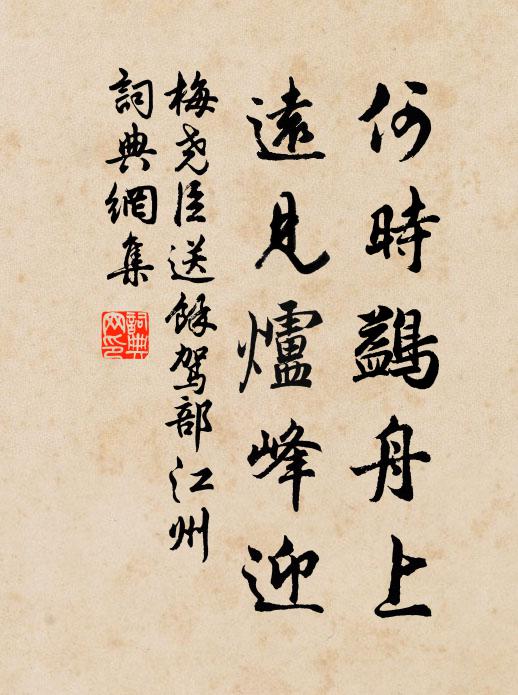 何時鷁舟上
遠見爐峰迎
梅堯臣送餘駕部江州
詞典網集
詞典